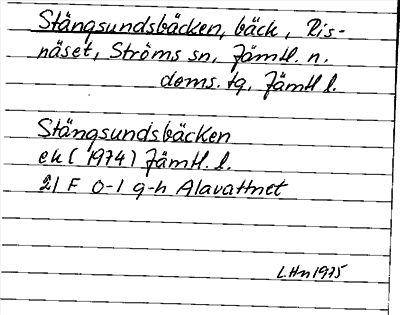 Stängsundsbäcken, bäck, Ris-
näset, Ströms sn, Jämtl. n.
doms. sg, Jämtl l.
Stängsundsbäcken
ek (1974) Jämtl. l.
21 F 0-1 g-h Alavattnet
L.Hn 1975